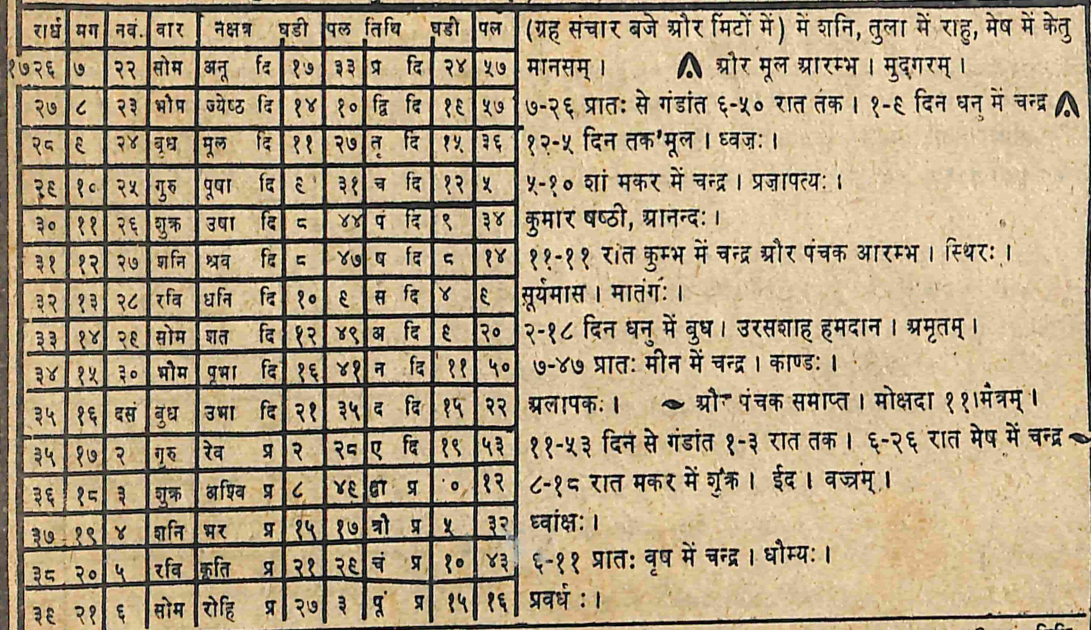 राध मग नवं. वार नक्षत्र घडी पल तिथि घडी पल (ग्रह संचार बजे और मिटों में) में शनि, तुला में राहु, मेष में केतु
१७२६ ७ २२ सोम अनू दि १७ ३३ प्र दि २४ ५७ मानसम् । और मूल आरम्भ । मुद्गरम् ।
२७ ८ २३ भौम ज्येष्ठ दि १४ १० द्वि दि १९ ५७ ७-२६ प्रातः से गंडांत ६-५० रात तक । १-९ दिन धनु में चन्द्र
२८ ९ २४ बुध मूल दि ११ २७ तृ दि १५ ३६ १२-५ दिन तक मूल । ध्वजः ।
२९ १० २५ गुरु पूषा दि ९ ३१ च दि १२ ५ ५-१० शां मकर में चन्द्र । प्रजापत्यः ।
३० ११ २६ शुक्र उषा दि ८ ४४ पं दि ९ ३४ कुमार षष्ठी, आनन्दः ।
३१ १२ २७ शनि श्रव दि ८ ४७ ष दि ८ १४ ११-११ रात कुम्भ में चन्द्र और पंचक आरम्भ । स्थिरः ।
३२ १३ २८ रवि धनि दि १० ९ स दि ४ ९ सूर्यमास । मातंगः ।
३३ १४ २९ सोम शत दि १२ ४९ अ दि ९ २० २-१८ दिन धनु में बुध । उरसशाह हमदान । अमृतम् ।
३४ १५ ३० भौम पूभा दि १६ ४१ न दि ११ ५० ७-४७ प्रातः मीन में चन्द्र । काण्डः ।
३५ १६ दसं बुध उभा दि २१ ३५ द दि १५ २२ अलापकः । और पंचक समाप्त । मोक्षदा ११।मैत्रम् ।
३५ १७ २ गुरु रेव प्र २ २८ ए दि १९ ५३ ११-५३ दिन से गंडांत १-३ रात तक । ६-२६ रात मेष में चन्द्र
३६ १८ ३ शुक्र अश्वि प्र ८ ४९ द्वा प्र ० १२ ८-१८ रात मकर में शुक्र । ईद । वज्रम् ।
३७ १९ ४ शनि भर प्र १५ १७ त्रो प्र ५ ३२ ध्वांक्षः ।
३८ २० ५ रवि कृति प्र २१ २९ चं प्र १० ४३ ६-११ प्रातः वृष में चन्द्र । धौम्यः ।
३९ २१ ६ सोम रोहि प्र २७ ३ पूं प्र १५ १६ प्रवर्धः ।